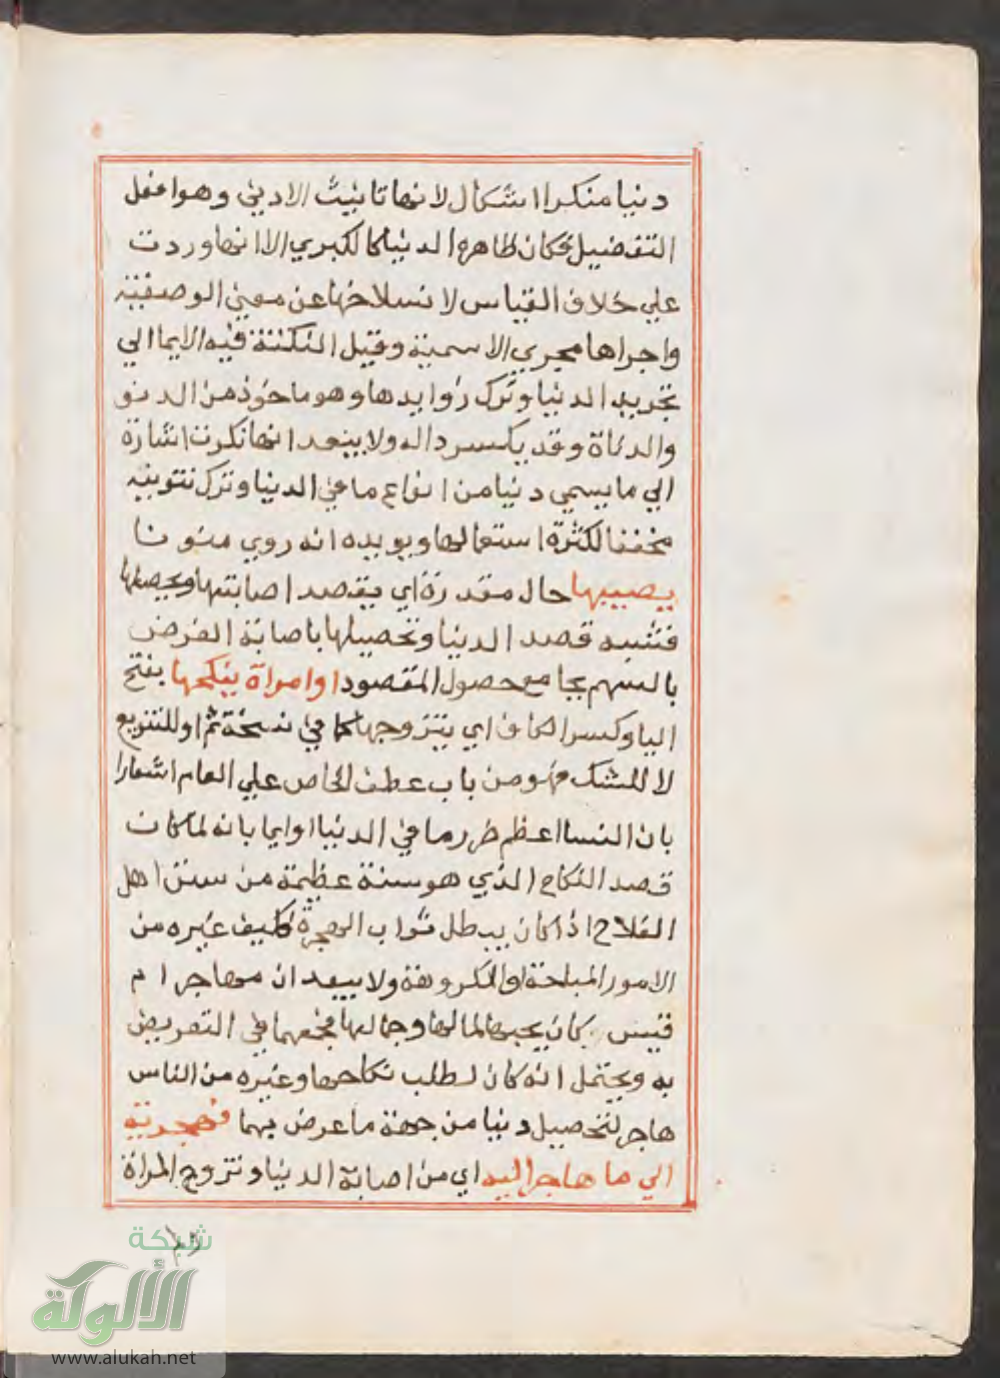 دنيا منكرا اشكال لانها تانيث الادني وهو افعل
التفضيل فكان ظاهره الدنيا كالكبري الا انها وردت
علي خلاف القياس لانسلاخها عن معني الوصفية
واجراها مجري الاسمية وقيل النكتة فيه الايما الي
تجريد الدنيا وترك زوايدها وهو ماخوذ من الدنو
والدناة وقد يكسر داله ولا يبعد انها نكرت اشارة
الي ما يسمي دنيا من انواع ما في الدنيا وترك تنوينه
مخففا لكثرة استعمالها ويويده انه روي منونا
يصيبها حال مقدرة اي يقصد اصابتها ويحصلها
فشبه قصد الدنيا وتحصيلها باصابة الغرض
بالسهم بجامع حصول المقصود او امراة ينكحها بفتح
اليا وكسر الكاف اي يتزوجها كما في نسخة ثم او للتنويع
لا للشك فهو من باب عطف الخاص علي العام اشعارا
بان النسا اعظم ضررا ما في الدنيا او ايما بانه لما كان
قصد النكاح الذي هو سنة عظيمة من سنن اهل
الفلاح اذا كان يبطل ثواب الهجرة فكيف غيره من
الامور المباحة او المكروهة ولا يبعد ان مهاجر ام
قيس كان يحبها لمالها وجمالها فجمعهما في التعريض
به ويحتمل انه كان لطلب نكاحها وغيره من الناس
هاجر لتحصيل دنيا من جهة ما عرض بهما فهجرته
الي ما هاجر اليه اي من اصابة الدنيا وتزوج المراة
شبكة
الألوكة
www.alukah.net